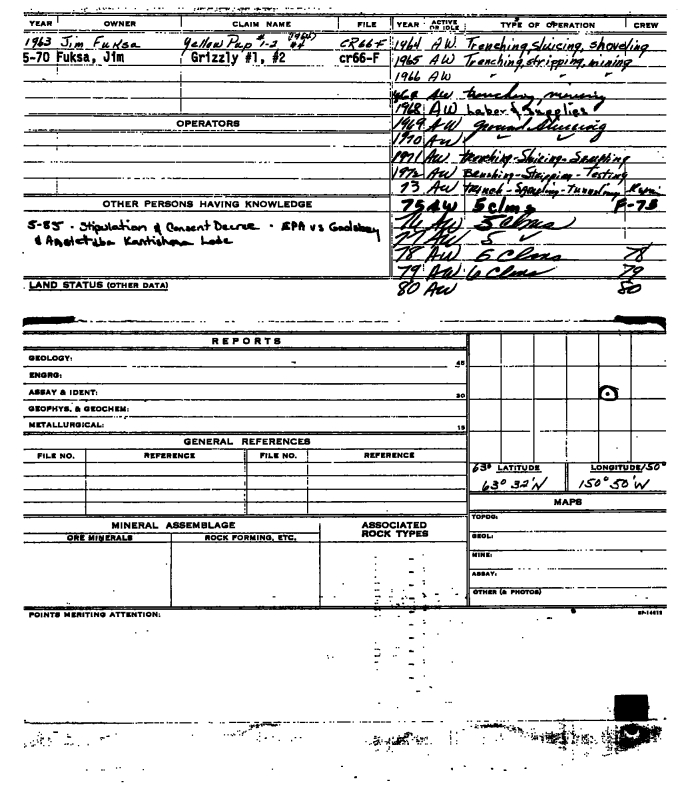 YEAR OWNER CLAIM NAME FILE YEAR ACTIVE OR IDLE TYPE OF OPERATION CREW
1963 Jim Fuksa Yellow Pup #1-2 (1964) #4 CR66F 1964 AW Trenching, sluicing, shoveling
5-70 Fuksa, Jim Grizzly #1, #2 cr66-F 1965 AW Trenching, stripping, mining
1966 AW " " "
AW trenching, mining
1968 AW Labor & Supplies
OPERATORS
1969 AW ground sluicing
1970 AW ✓ ✓
1971 AW trenching-Sluicing-Sampling
1972 AW Benching-Stripping-Testing
73 AW Trench-Sampling-Tunneling
OTHER PERSONS HAVING KNOWLEDGE
75 AW 5 clms F-75
5-85 - Stipulation & Consent Decree - EPA vs
& Kantishna Lode
76 AW 5 clms
77 AW 5 ✓
78 AW 5 Clms 78
79 AW 6 Clms 79
LAND STATUS (OTHER DATA)
80 AW 80
REPORTS
GEOLOGY: 45
ENGRG:
ASSAY & IDENT: 30
GEOPHYS. & GEOCHEM:
METALLURGICAL: 15
GENERAL REFERENCES
FILE NO. REFERENCE FILE NO. REFERENCE
63° LATITUDE LONGITUDE/50°
63° 32'N 150° 50'W
MAPS
MINERAL ASSEMBLAGE ASSOCIATED ROCK TYPES
ORE MINERALS ROCK FORMING, ETC.
TOPOG:
GEOL:
MINE:
ASSAY:
OTHER (& PHOTOS)
POINTS MERITING ATTENTION: